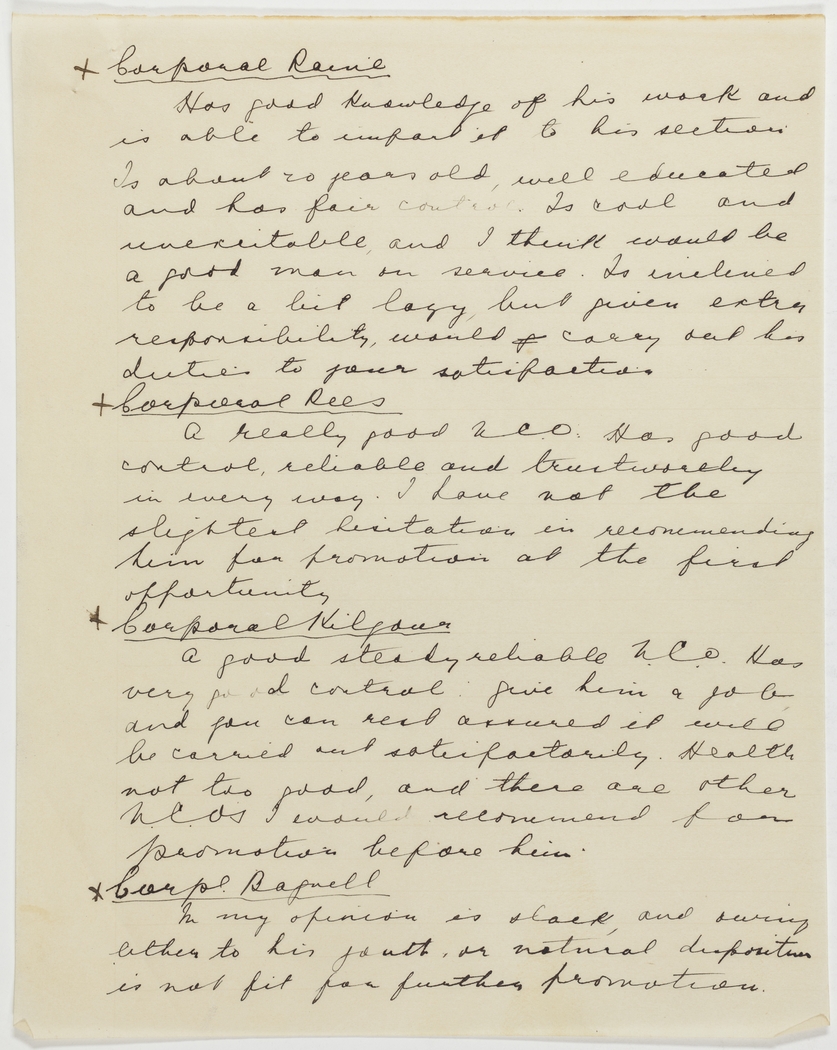 + Corporal Raine
Has good knowledge of his work and
is able to impart it to his section
Is about 20 years old, well educated
and has fair control. Is cool and
unexcitable, and I think would be
a good man on service. Is inclined
to be a bit lazy, but given extra
responsibility, would carry out his
duties to your satisfaction
+ Corporal Rees
A really good N.C.O. Has good
control, reliable and trustworthy
in every way. I have not the
slightest hesitation in recommending
him for promotion at the first
opportunity
+ Corporal Kilgour
A good steady reliable N.C.O. Has
very good control. Give him a job
and you can rest assured it will
be carried out satisfactorily. Health
not too good, and there are other
N.C.Os I would recommend for
promotion before him.
x Corpl. Bagnell
In my opinion is slack, and owing
either to his youth, or natural disposition
is not fit for further promotion.